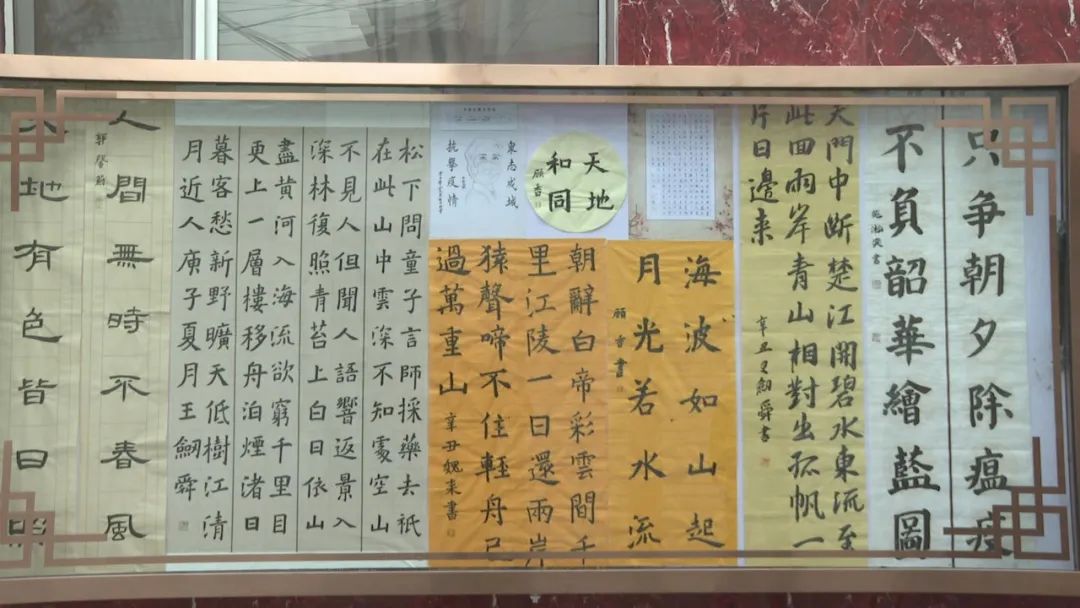 只争朝夕除瘟疫
不負韶華繪藍圖
天門中断楚江開碧水東流至
此回兩岸青山相對出孤帆一
片日邊来
天地
和同
衆志成城
抗擊疫情
海波如山起
月光若水流
朝辭白帝彩雲間千
里江陵一日還兩岸
猿聲啼不住輕舟已
過萬重山
辛丑魏来書
松下問童子言師採藥去祇
在此山中雲深不知處空山
不見人但聞人語響返景入
深林復照青苔上白日依山
盡黄河入海流欲窮千里目
更上一層樓移舟泊煙渚日
暮客愁新野曠天低樹江清
月近人庚子夏月王劍舜
人間無時不春風
地有色皆日